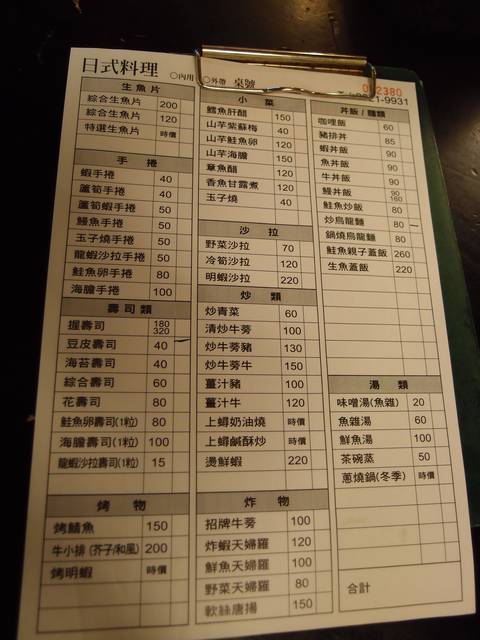 日式料理 ○內用 ○外帶 桌號
2380
21-9931
生魚片
綜合生魚片 200
綜合生魚片 120
特選生魚片 時價
手 捲
蝦手捲 40
蘆筍手捲 40
蘆筍蝦手捲 50
鰻魚手捲 50
玉子燒手捲 50
龍蝦沙拉手捲 50
鮭魚卵手捲 80
海膽手捲 100
壽司類
握壽司 180 320
豆皮壽司 40
海苔壽司 40
綜合壽司 60
花壽司 80
鮭魚卵壽司(1粒) 80
海膽壽司(1粒) 100
龍蝦沙拉壽司(1粒) 15
烤 物
烤鯖魚 150
牛小排 (芥子/和風) 200
烤明蝦 時價
小 菜
鱈魚肝醋 150
山芋紫蘇梅 40
山芋鮭魚卵 120
山芋海膽 150
章魚醋 120
香魚甘露煮 120
玉子燒 40
沙 拉
野菜沙拉 70
冷筍沙拉 120
明蝦沙拉 220
炒 類
炒青菜 60
清炒牛蒡 100
炒牛蒡豬 130
炒牛蒡牛 150
薑汁豬 100
薑汁牛 120
上蟳奶油燒 時價
上蟳鹹酥炒 時價
燙鮮蝦 220
炸 物
招牌牛蒡 100
炸蝦天婦羅 120
鮮魚天婦羅 100
野菜天婦羅 80
軟絲唐揚 150
丼飯 / 麵類
咖哩飯 60
豬排丼 85
蝦丼飯 90
魚丼飯 90
牛丼飯 90
鰻丼飯 90 160
鮭魚炒飯 80
炒烏龍麵 80
鍋燒烏龍麵 80
鮭魚親子蓋飯 260
生魚蓋飯 220
湯 類
味噌湯(魚雜) 20
魚雜湯 60
鮮魚湯 100
茶碗蒸 50
蔥燒鍋(冬季) 時價
合計